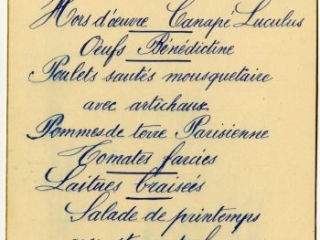 Hors d'œuvre Canapé Luculus
Oeufs Bénédictine
Poulets sautés mousquetaire
avec artichaux
Pommes de terre Parisienne
Tomates farcies
Laitues braisées
Salade de printemps